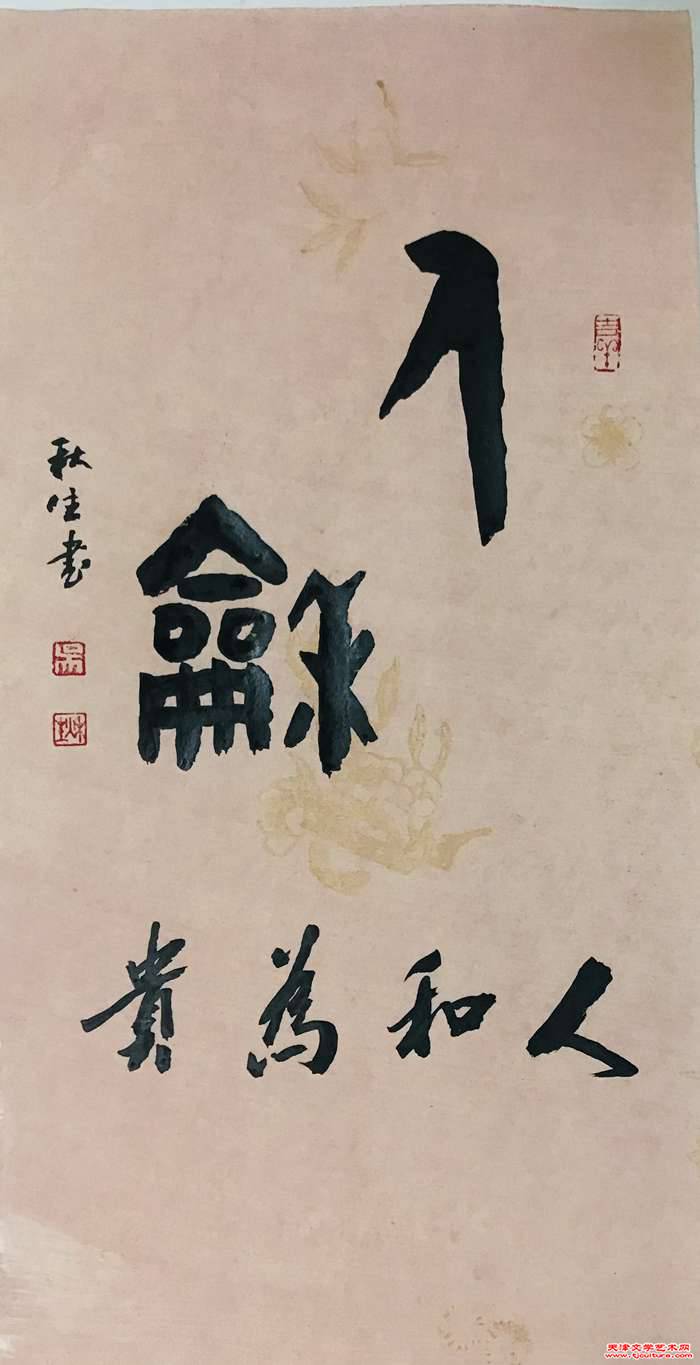 人
龢
人和為貴
秋 書
天津文学艺术网
www.tjcultura.com